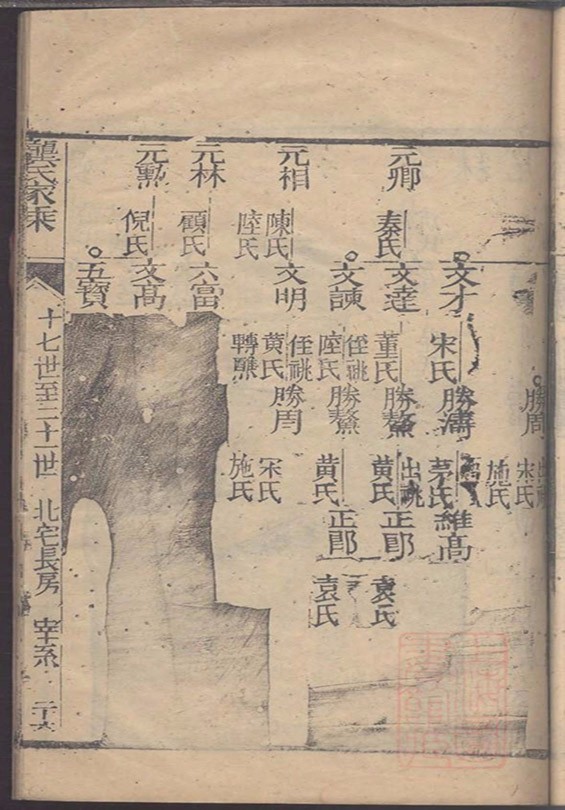 勝周
宋氏
施氏
文才
宋氏
勝濤
茅氏
維高
元卿
秦氏
文達
董氏
勝鰲
出祧
黄氏
正郎
袁氏
文諫
侄祧
陸氏
勝鰲
黄氏
正郎
袁氏
元相
陳氏
陸氏
文明
侄祧
黄氏
轉醮
勝周
宋氏
施氏
元林
顧氏
六富
元勳
倪氏
文高
五寶
龔氏家乘
十七世至二十一世 北宅長房 幸系 二十六